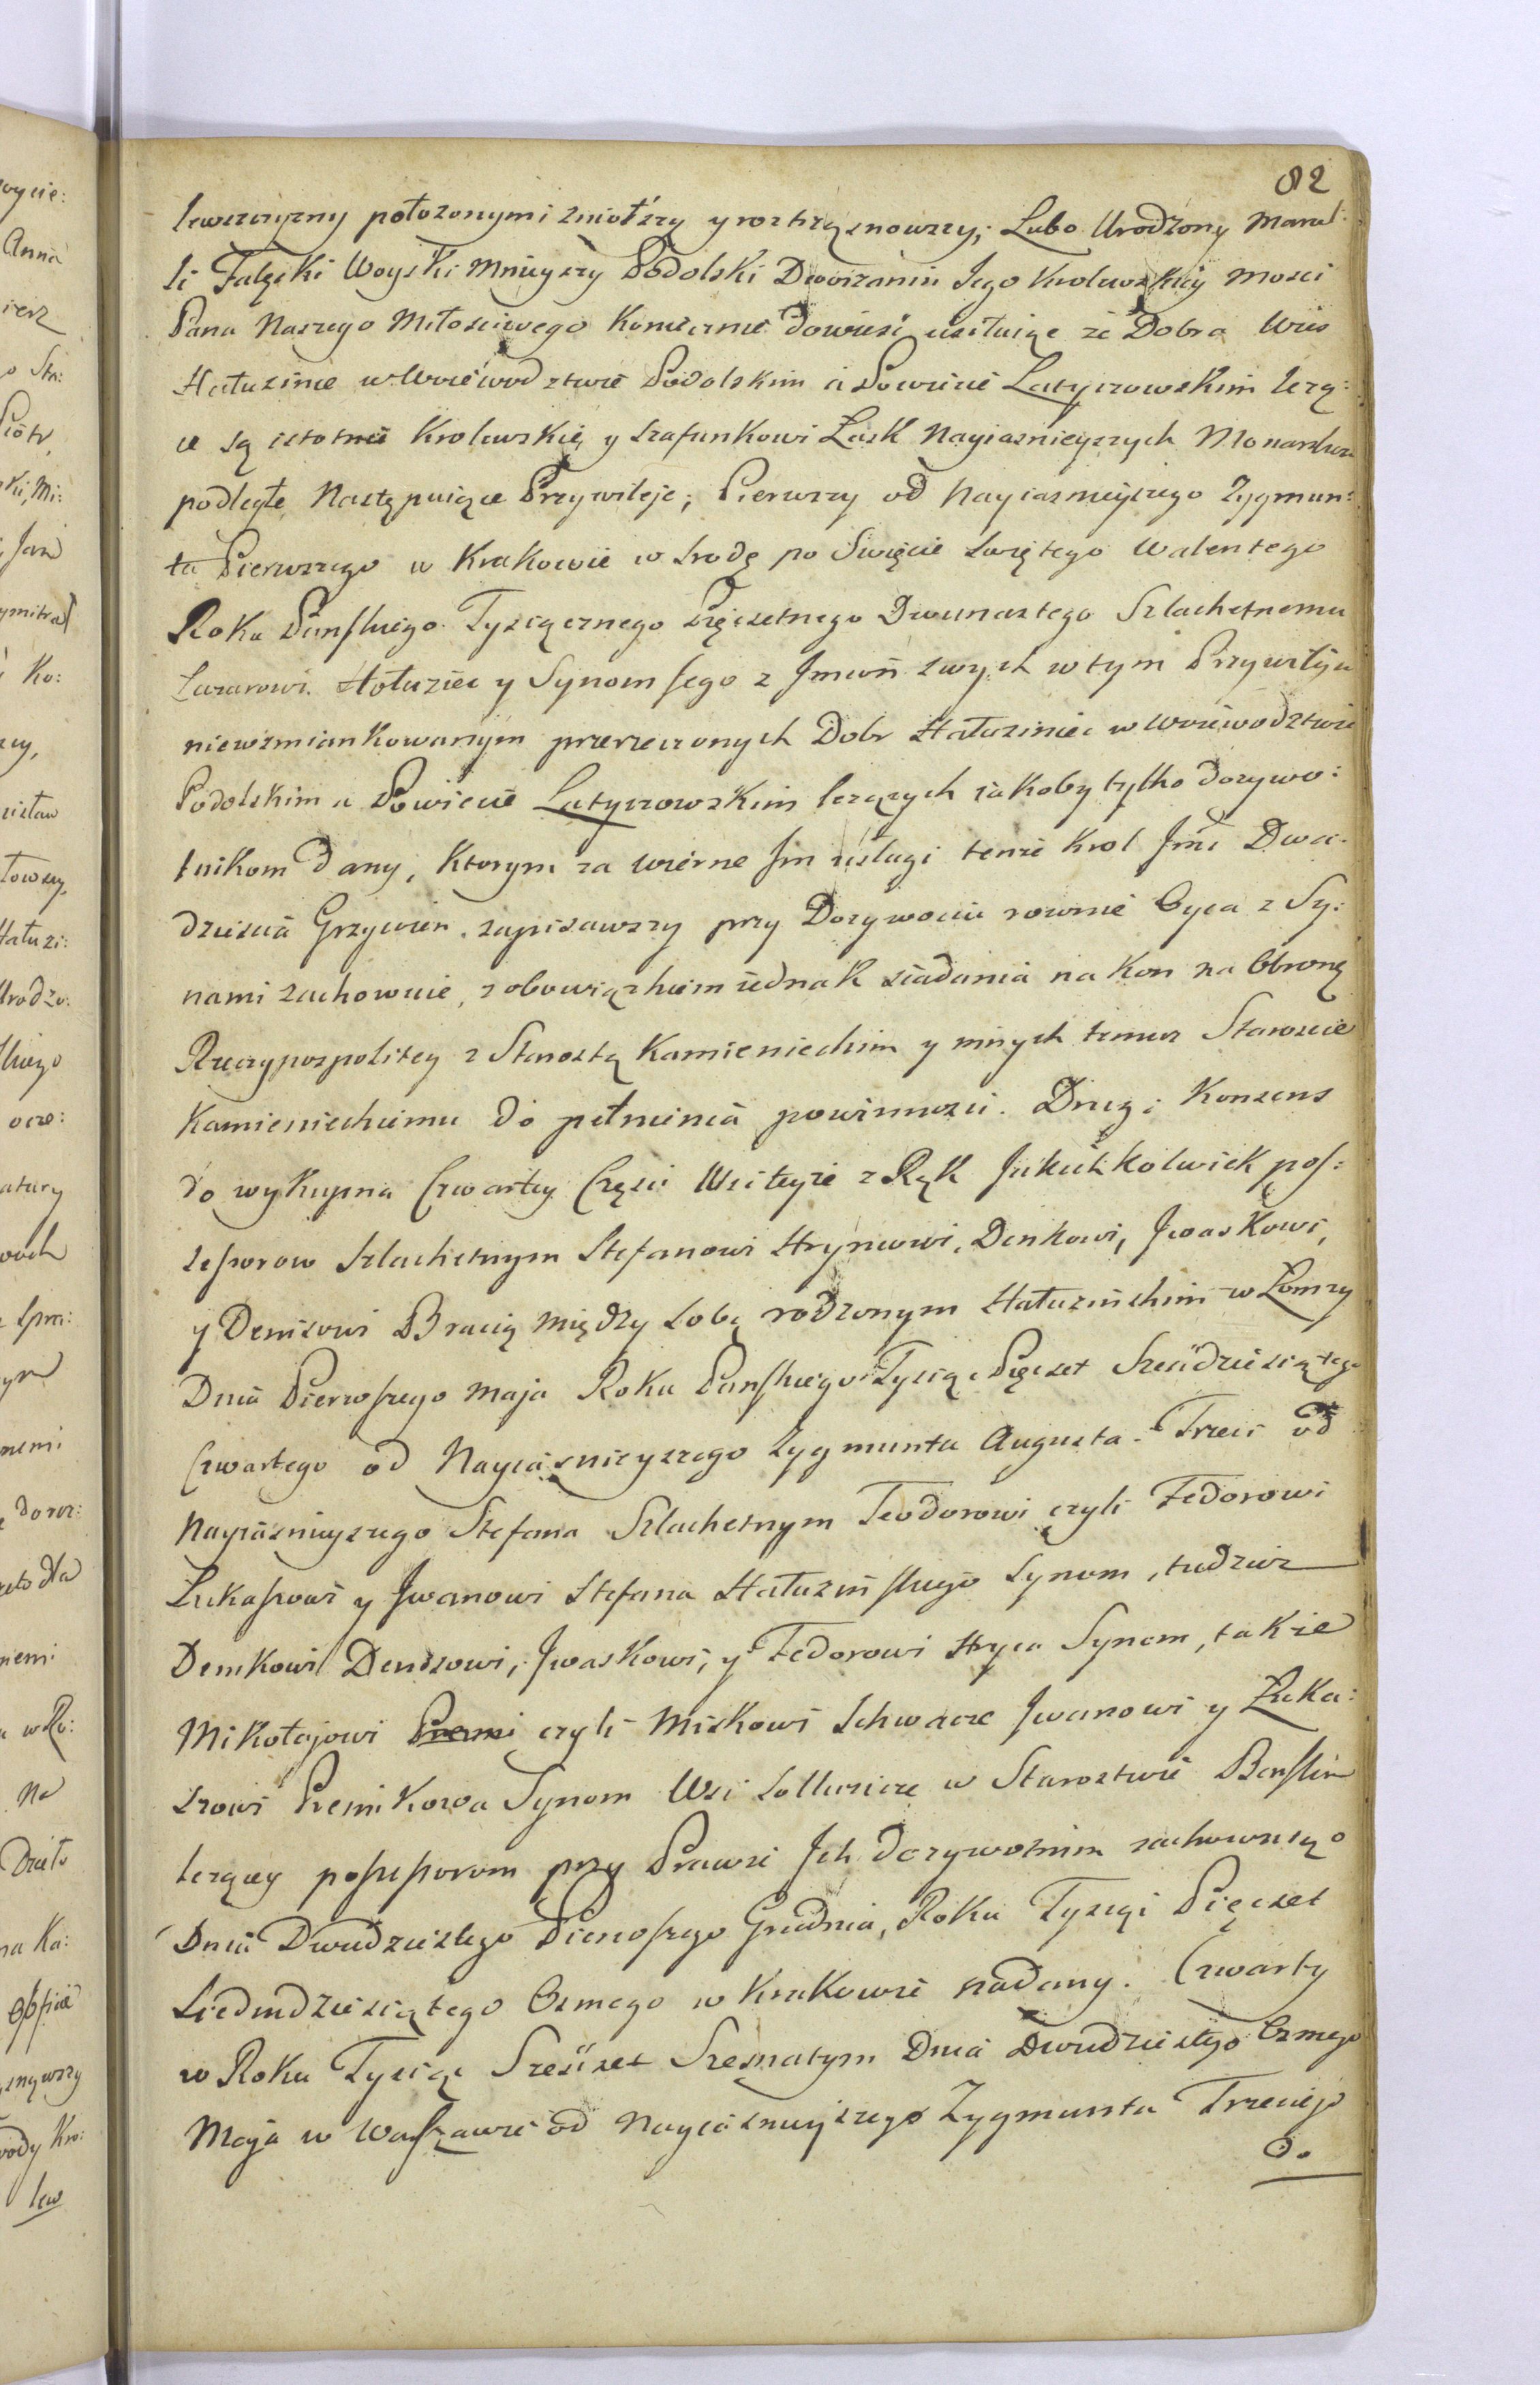 82
lewszczyzny położonymi zniosłszy y roztrząsnowszy; Lubo Urodzony Marcel:
li Falęcki Woyski Mnieyszy Podolski Dworzanin Jego Krolewskiey Mosci
Pana Naszego Miłosciwego Koniecznie dowiesć usiłuiąc że Dobra Wies
Hałuzince w Woiewodztwie Podolskim a Powiecie Latyczowskim leżą:
ce są istotnie Krolewskie y szafunkowi Łask Nayiasnieyszych Monarchow
podległe Następuiące Przywileje; Pierwszy od Nayiasnieyszego Zygmun:
ta Pierwszego w Krakowie w Srodę po Swięcie Swiętego Walentego
Roku Panskiego Tysiącznego Pięcsetnego Dwunastego Szlachetnemu
Lazarowi Hołuziec y Synom Jego z Jmion swych w tym Przywileju
niewzmiankowanym przerzeczonych Dobr Hałuziniec w Woiewodztwie
Podolskim a Powiecie Latyczowskim leżących iakoby tylko dożywo:
tnikom dany, Ktorym za wierne Jm usługi tenże Krol Jmć Dwa:
dziescia Grzywien zapisawszy przy Dożywociu rownie Oyca z Sy:
nami zachowuie, z obowiązkiem iednak siadania na Kon na Obronę
Rzeczypospolitey z Starostą Kamienieckim y innych temuz Staroscie
Kamienieckiemu do pełnienia powinnosci. Drugi Konsens
do wykupna Czwartey Częsci Wsi teyże z Rąk Jakichkolwiek pos:
sessorow Szlachetnym Stefanowi Hryncowi, Denkowi, Jwaskowi,
y Denisowi Bracią między sobą rodzonym Hałuzińskim w Łomzy
Dnia Pierwszego Maja Roku Panskiego Tysiąc Pięcset Szescdziesiątego
Czwartego od Nayiasnieyszego Zygmunta Augusta. Trzeci od
Nayiasnieyszego Stefana Szlachetnym Teodorowi czyli Fedorowi
Łukaszowi y Jwanowi Stefana Hałuzińskiego Synom, tudzież
Demkowi Denisowi, Jwaskowi, y Fedorowi Hryca Synom, także
Mikołajowi czyli Miskowi Jwanowi y Łuka:
szowi Synom Wsi w Starostwie Barskim
leżącey possessorom przy Prawie Jch dożywotnim zachowuiąc
Dnia Dwudziestego Pierwszego Grudnia, Roku Tysiąc Pięcset
Siedmdziesiątego Osmego w Krakowie nadany. Czwarty
w Roku Tysiąc Szescset Szesnatym Dnia Dwudziestego Osmego
Maja w Warszawie od Nayiasnieyszego Zygmunta Trzeciego